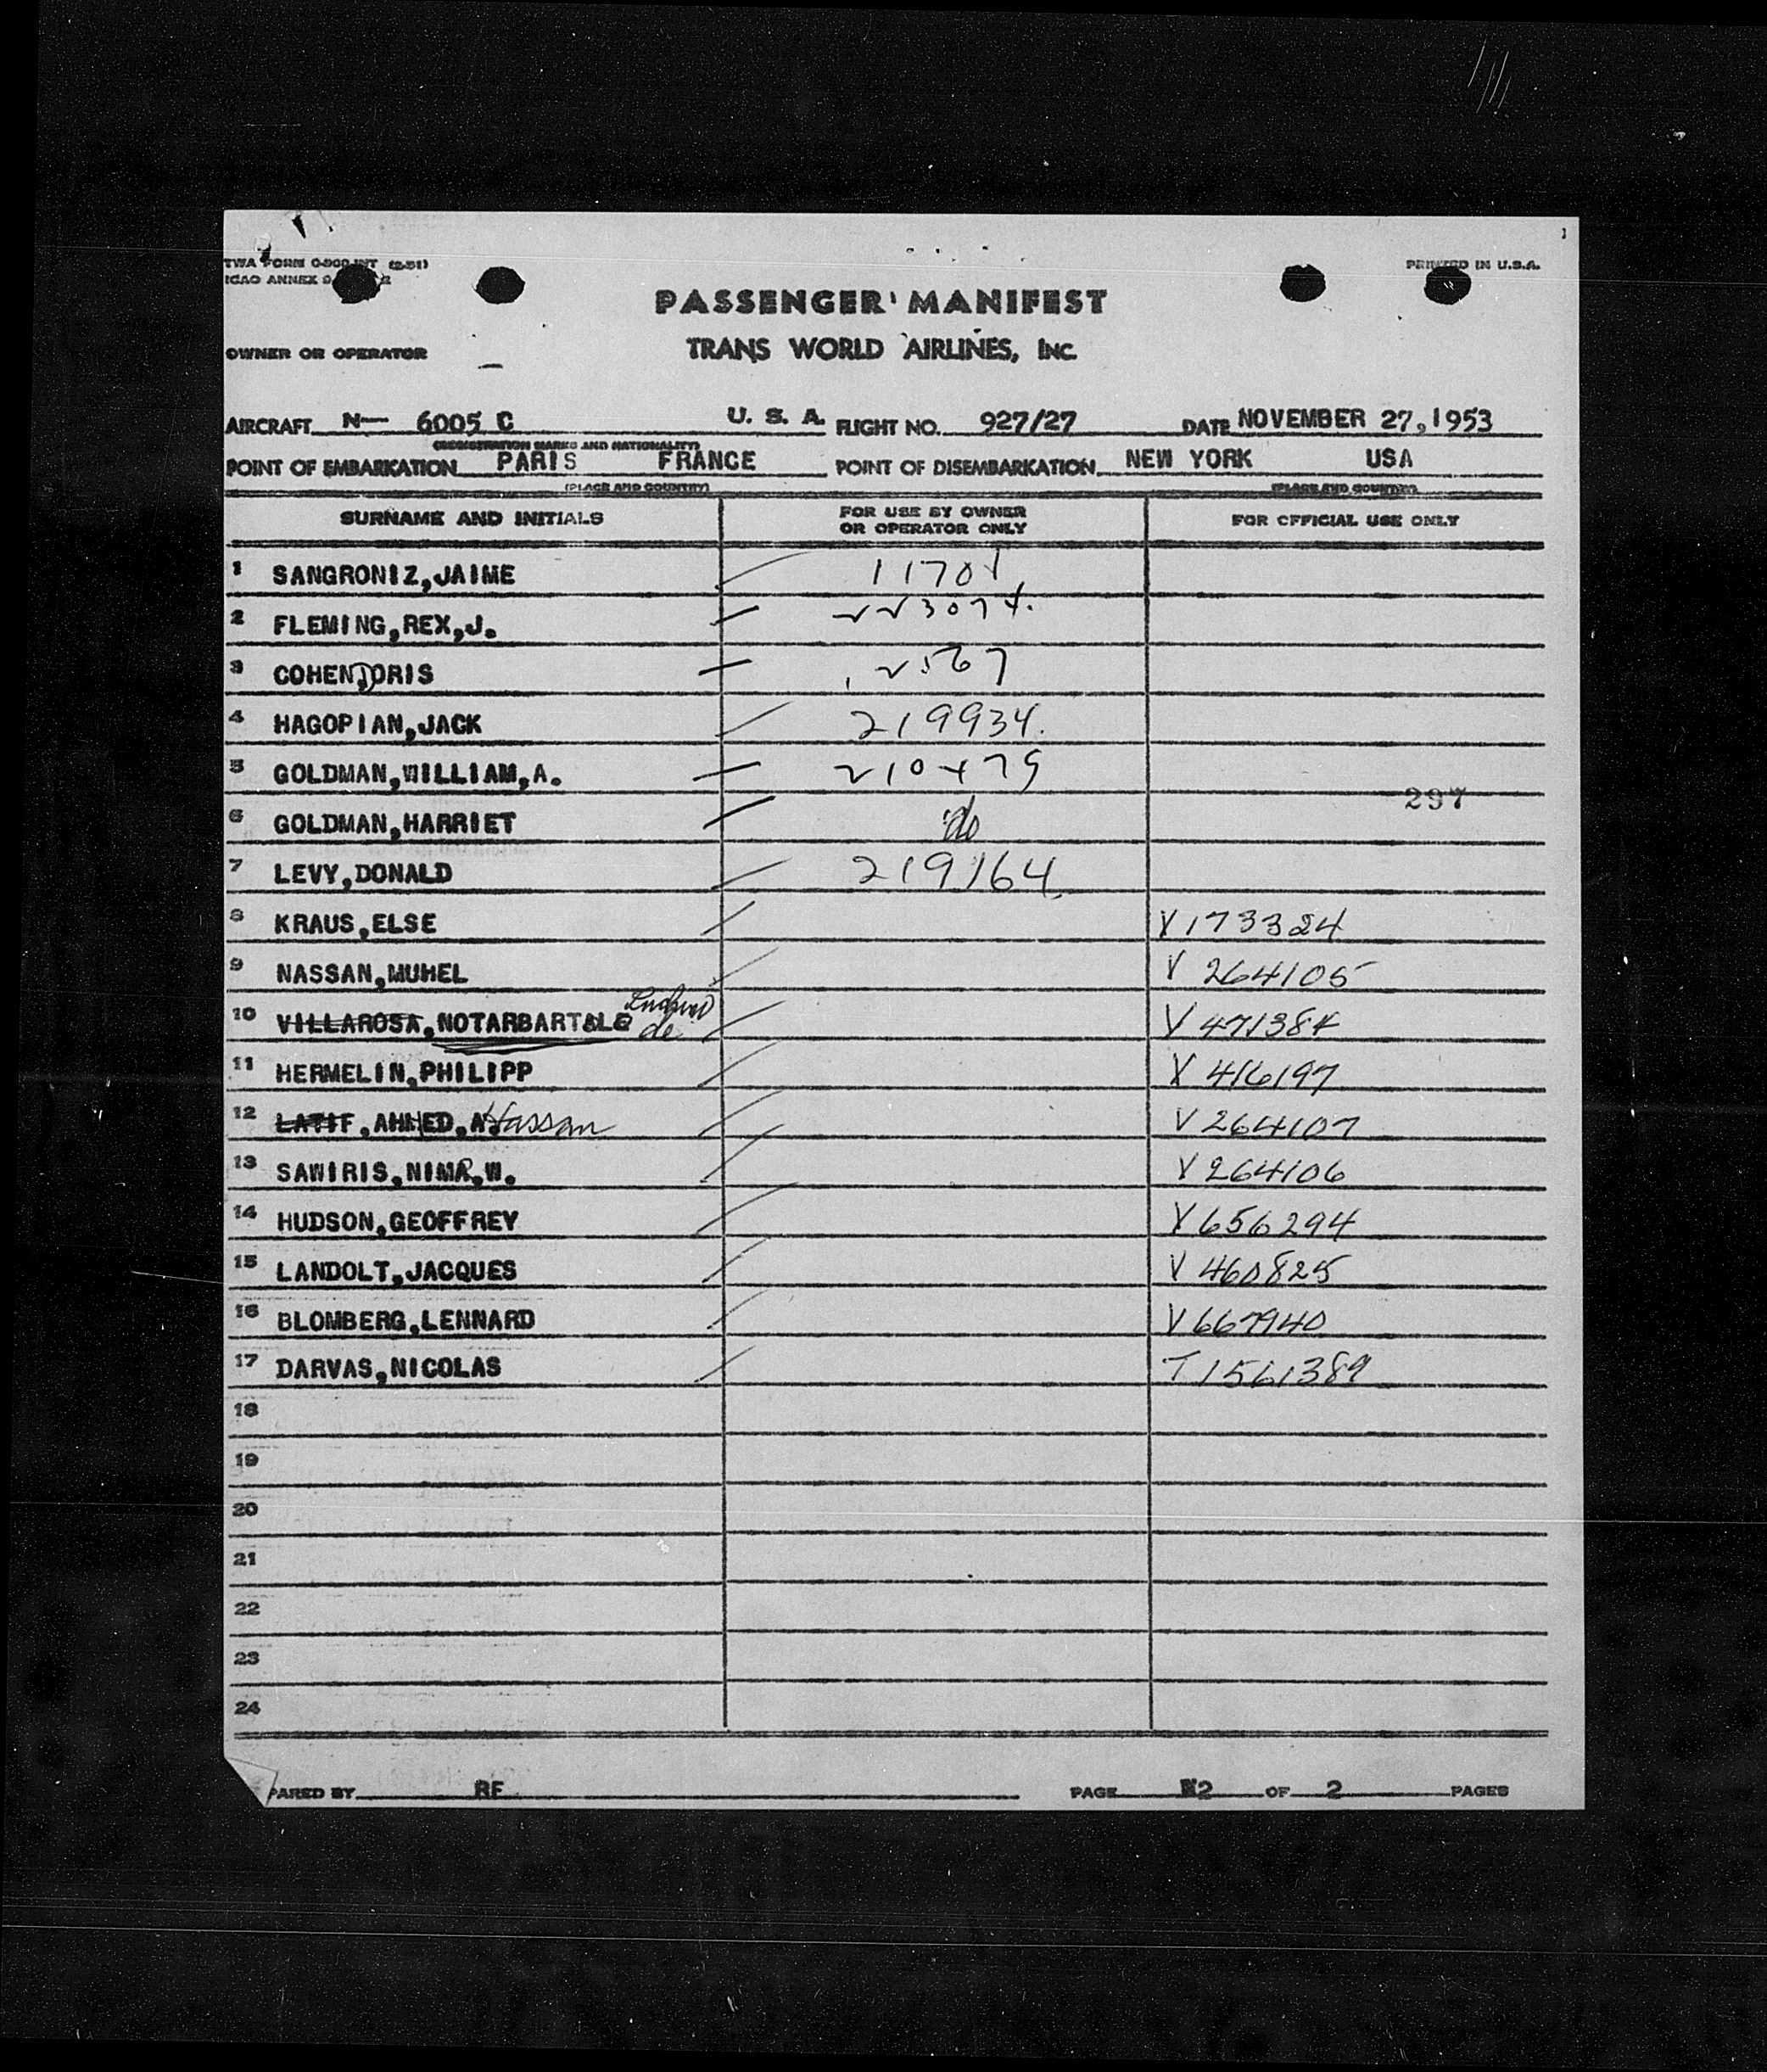 TWA FORM
ICAO ANNEX 9
PRINTED IN U.S.A.
PASSENGER MANIFEST
OWNER OR OPERATOR
TRANS WORLD AIRLINES, INC.
AIRCRAFT N— 6005 C U. S. A. FLIGHT NO. 927/27 DATE NOVEMBER 27, 1953
(REGISTRATION MARKS AND NATIONALITY)
POINT OF EMBARKATION PARIS FRANCE POINT OF DISEMBARKATION NEW YORK USA
(PLACE AND COUNTRY) (PLACE AND COUNTRY)
SURNAME AND INITIALS FOR USE BY OWNER OR OPERATOR ONLY FOR OFFICIAL USE ONLY
1 SANGRONIZ,JAIME
2 FLEMING,REX,J.
3 COHEN,DORIS
4 HAGOPIAN,JACK 219934.
5 GOLDMAN,WILLIAM,A.
297
6 GOLDMAN,HARRIET do
7 LEVY,DONALD 219164
8 KRAUS,ELSE V173324
9 NASSAN,MUHEL V 264105
10 VILLAROSA,NOTARBARTOLO de
11 HERMELIN,PHILIPP V 416197
12 LATIF,AHMED,A. Hassan V 264107
13 SAWIRIS,NIMR,W. V 264106
14 HUDSON,GEOFFREY V 656294
15 LANDOLT,JACQUES V 460825
16 BLOMBERG,LENNARD V 667940
17 DARVAS,NICOLAS T 1561389
18
19
20
21
22
23
24
PARED BY RF PAGE 2 OF 2 PAGES